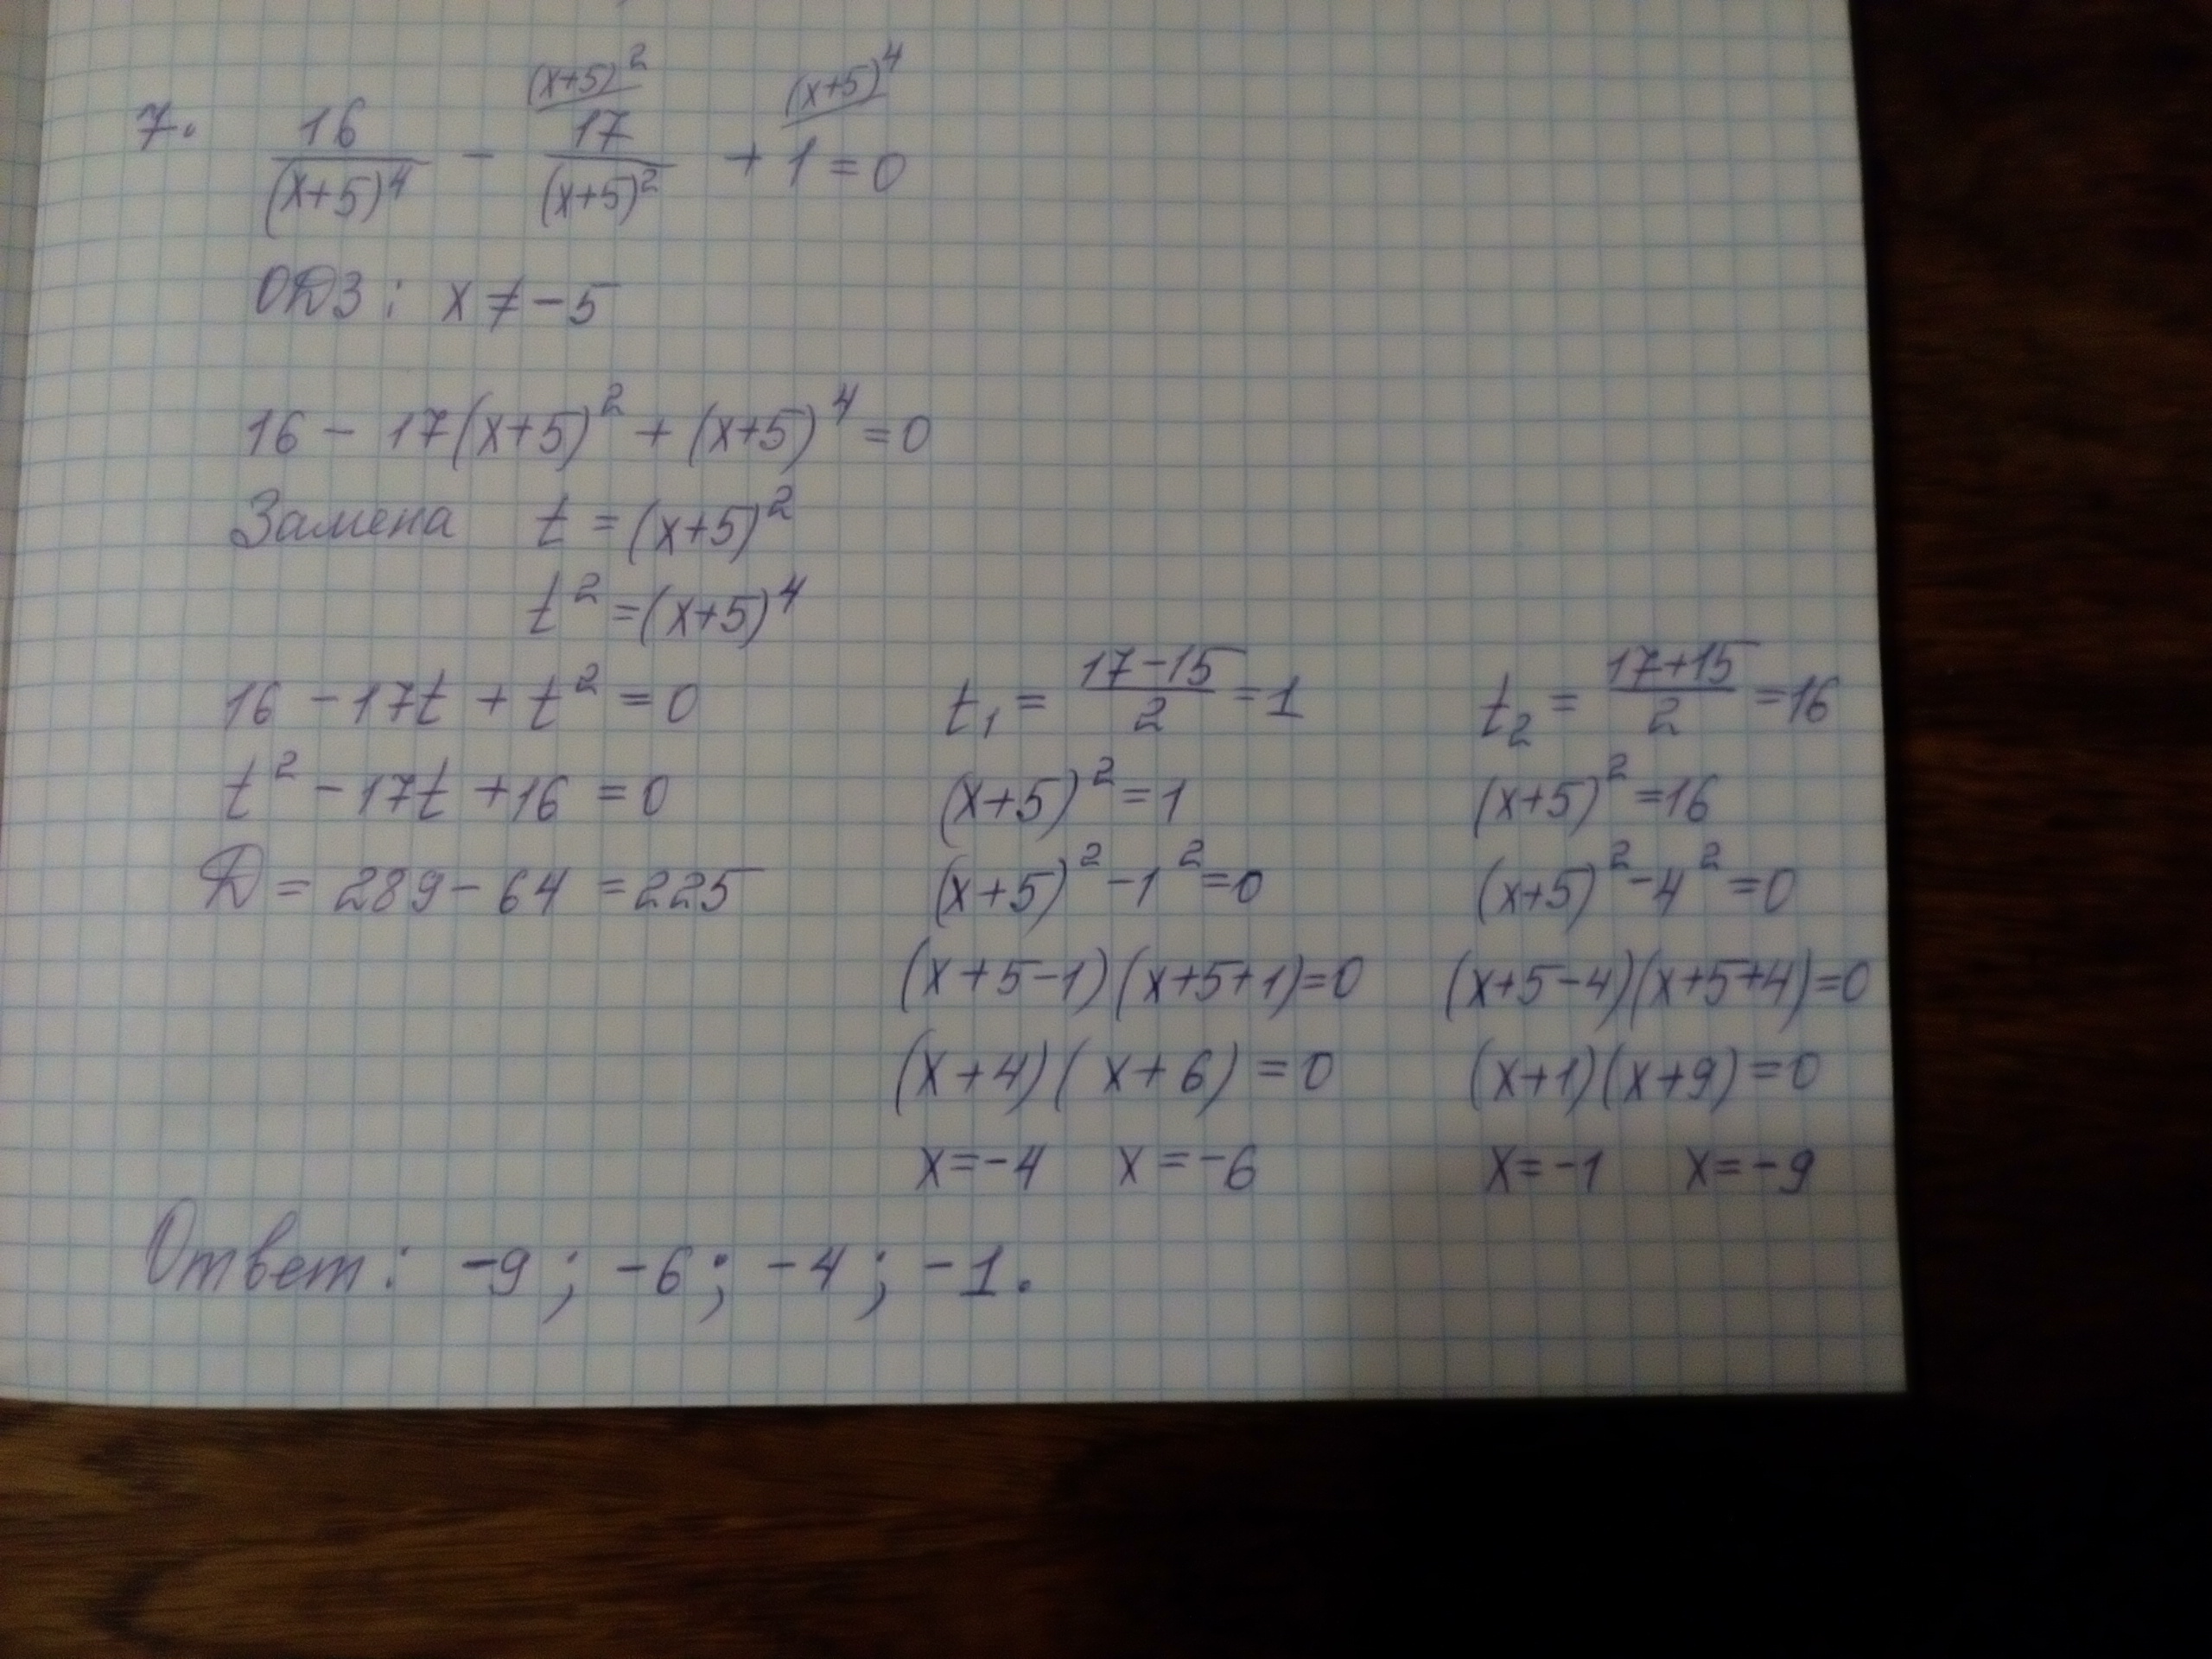 (x+5)² (x+5)⁴
7. 16/(x+5)⁴ - 17/(x+5)² + 1 = 0
ОДЗ: x ≠ -5
16 - 17(x+5)² + (x+5)⁴ = 0
Замена t = (x+5)²
t² = (x+5)⁴
16 - 17t + t² = 0
t² - 17t + 16 = 0
Д = 289 - 64 = 225
t₁ = (17-15)/2 = 1
(x+5)² = 1
(x+5)² - 1² = 0
(x+5-1)(x+5+1) = 0
(x+4)(x+6) = 0
x = -4 x = -6
t₂ = (17+15)/2 = 16
(x+5)² = 16
(x+5)² - 4² = 0
(x+5-4)(x+5+4) = 0
(x+1)(x+9) = 0
x = -1 x = -9
Ответ: -9; -6; -4; -1.